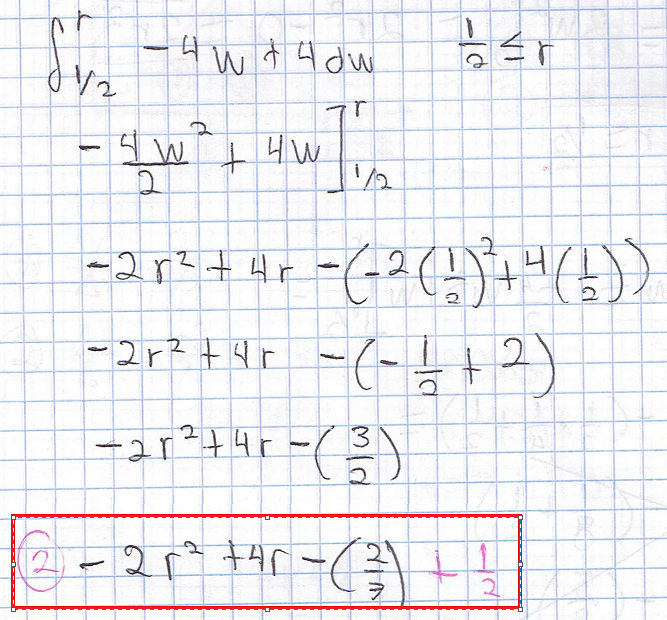 ∫_{1/2}^{r} -4w + 4 dw    1/2 ≤ r
-4w²/2 + 4w ]_{1/2}^{r}
-2r² + 4r - (-2(1/2)² + 4(1/2))
-2r² + 4r - (-1/2 + 2)
-2r² + 4r - (3/2)
② - 2r² + 4r - (2/3) + 1/2